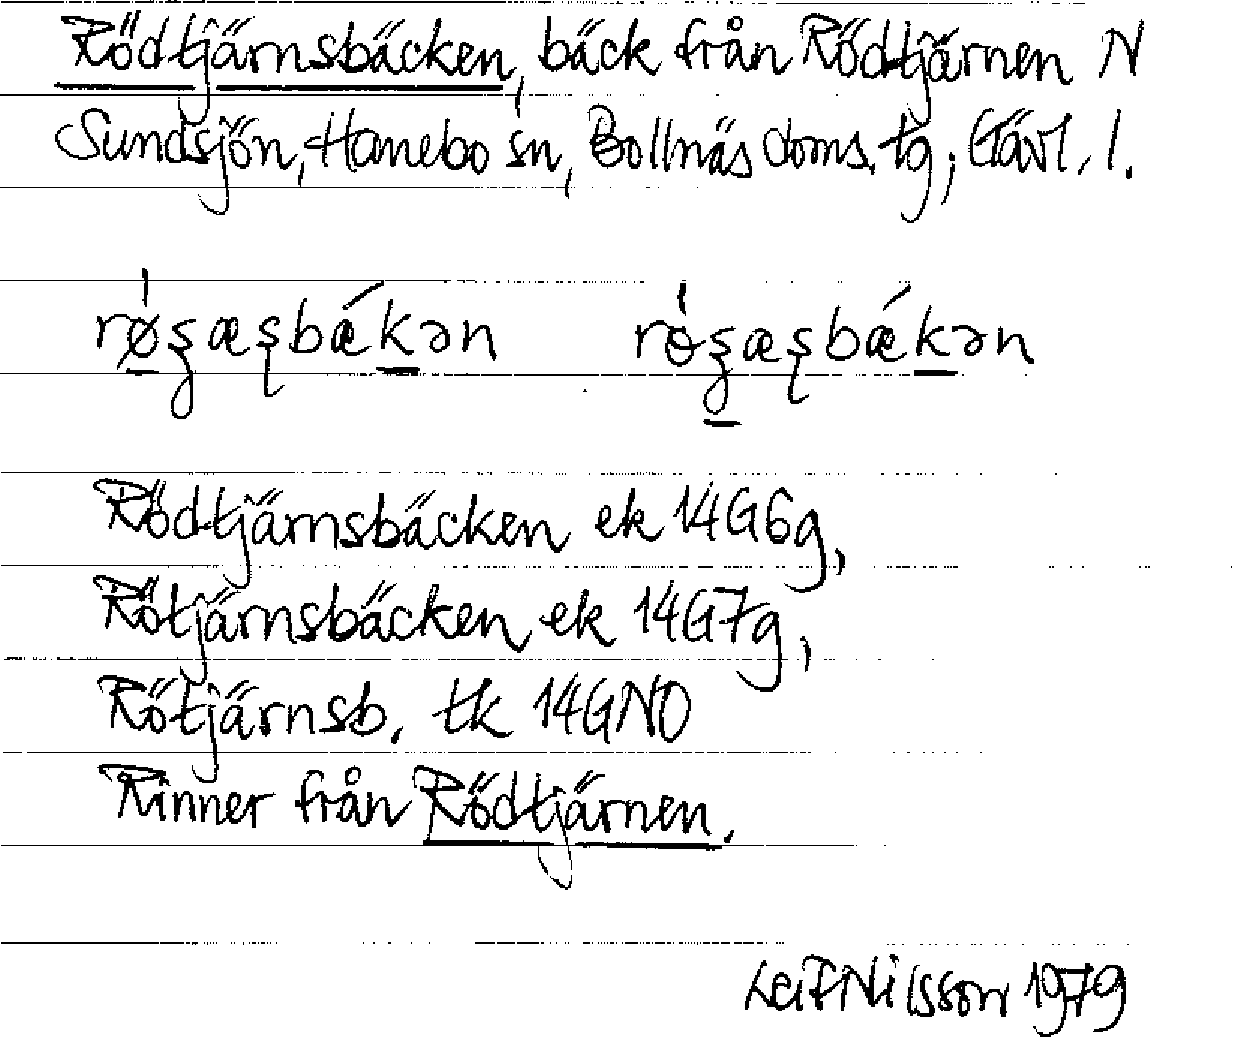 Rödtjärnsbäcken, bäck från Rödtjärnen N
Sundsjön, Hanebo sn, Bollnäs doms. tg, Gävl. l.
Rödtjärnsbäcken ek 14G6g,
Rötjärnsbäcken ek 14G7g,
Rötjärnsb. tk 14GNO
Rinner från Rödtjärnen.
Leif Nilsson 1979